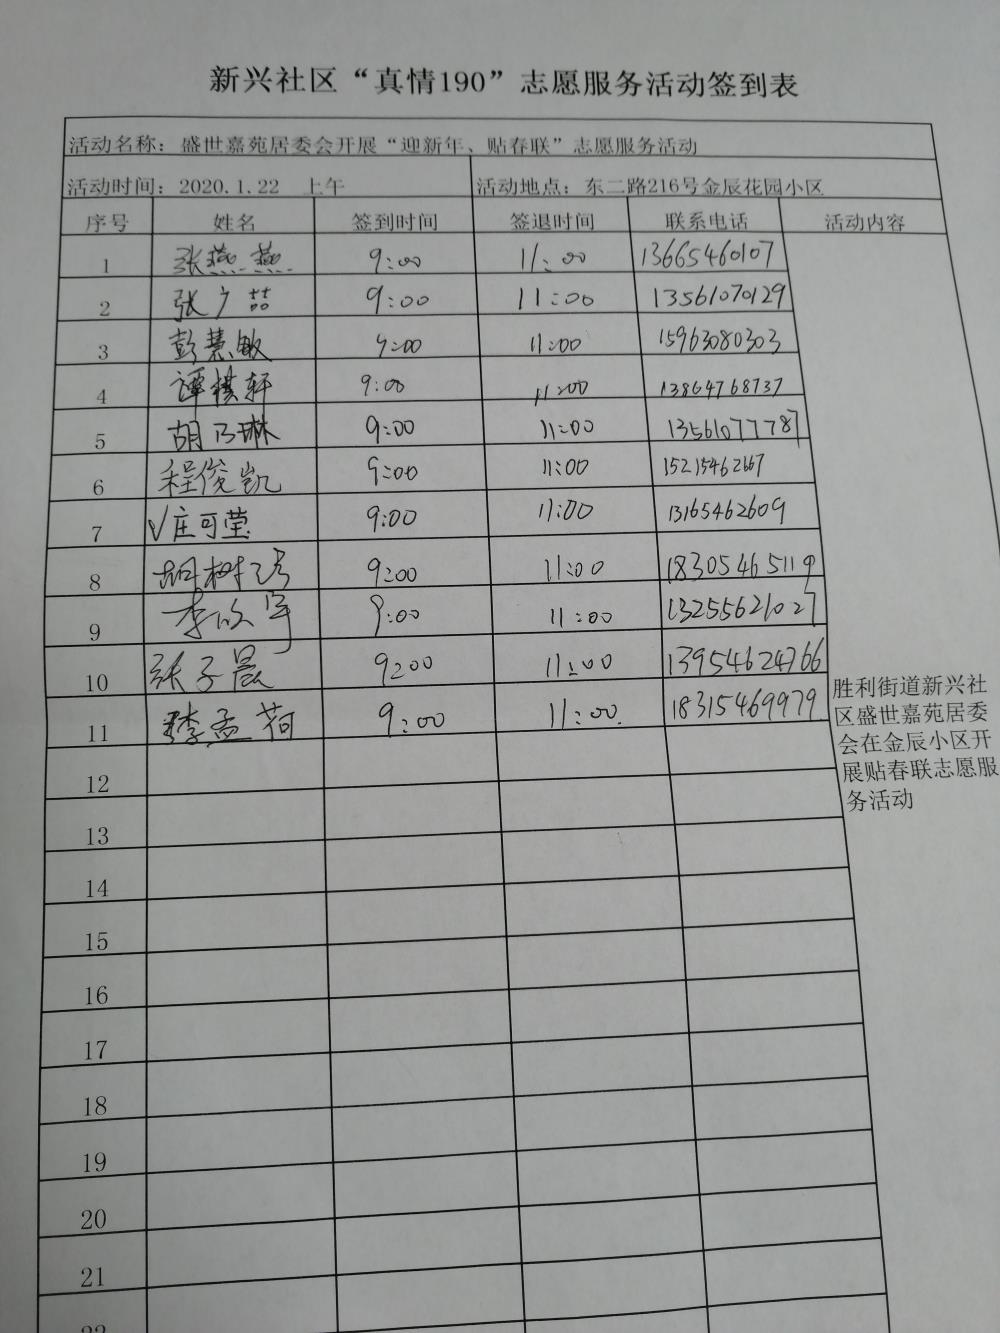 新兴社区“真情190”志愿服务活动签到表
活动名称：盛世嘉苑居委会开展“迎新年、贴春联”志愿服务活动
活动时间：2020.1.22 上午 活动地点：东二路216号金辰花园小区
序号 姓名 签到时间 签退时间 联系电话 活动内容
1 张燕燕 9:00 11:00 13665460107
2 张广喆 9:00 11:00 13561070129
3 彭慧敏 9:00 11:00 15963080303
4 谭棋轩 9:00 11:00 13864768737
5 胡乃琳 9:00 11:00 13561077787
6 程俊凯 9:00 11:00 15215462667
7 √庄可莹 9:00 11:00 13165462609
8 胡树 9:00 11:00 18305465119
9 李欣宇 9:00 11:00 13255621027
10 张子晨 9:00 11:00 13954624766
11 李孟荷 9:00 11:00 18315469979
胜利街道新兴社
区盛世嘉苑居委
会在金辰小区开
展贴春联志愿服
务活动
12
13
14
15
16
17
18
19
20
21
22